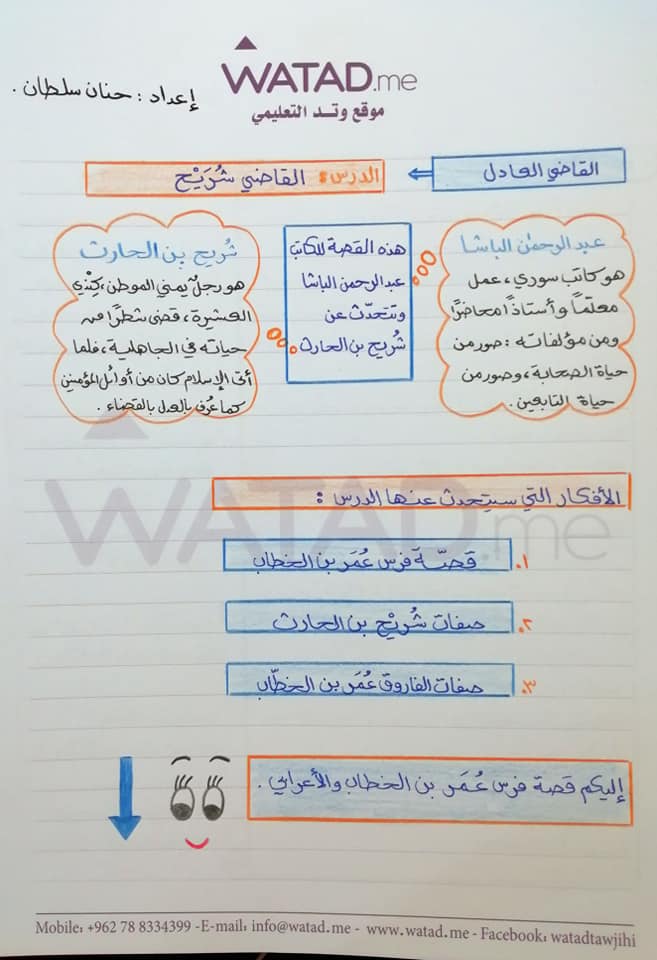 WATAD.me
موقع وتد التعليمي
إعداد : حنان سلطان .
القاضي العادل
الدرس : القاضي شُرَيْح
عبد الرحمن الباشا
هو كاتب سوري، عمل
معلمًا وأستاذًا محاضرًا
ومن مؤلفاته : صور من
حياة الصحابة، وصور من
حياة التابعين .
هذه القصة للكاتب
عبد الرحمن الباشا
وتتحدّث عن
شُريح بن الحارث
شُريح بن الحارث
هو رجلٌ يمني الموطن، كِنْدي
العشيرة، قضى شطرًا من
حياته في الجاهلية، فلما
أتى الإسلام كان من أوائل المؤمنين
كما عُرف بالعدل بالقضاء .
WATAD.me
الأفكار التي سيتحدث عنها الدرس :
١. قصّة فرس عُمَر بن الخطاب
٢. صفات شُريْح بن الحارث
٣. صفات الفاروق عُمَر بن الخطّاب
إليكم قصة فرس عُمَر بن الخطاب والأعرابي .
Mobile: +962 78 8334399 -E-mail: info@watad.me - www.watad.me - Facebook: watadtawjihi